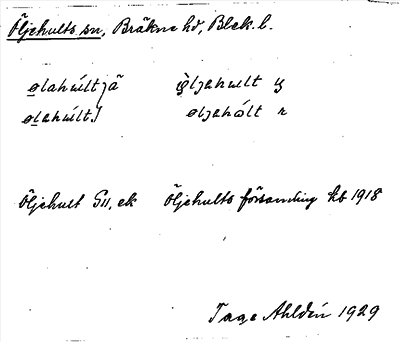 Öljehults sn, Bräkne hd, Blek. l.
ølahúltjä øljahult y
ølahúlt. øljahólt r
Öljehult GII, ek Öljehults församling kb 1918
Tage Ahldén 1929